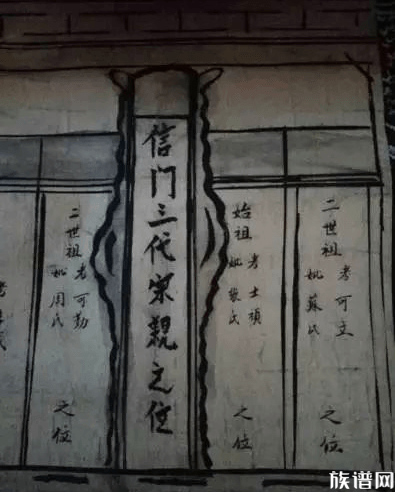 信门三代宗親之位
始祖 考士禎 妣張氏 之位
二世祖 考可立 妣蘇氏 之位
二世祖 考可勤 妣周氏 之位
族谱网